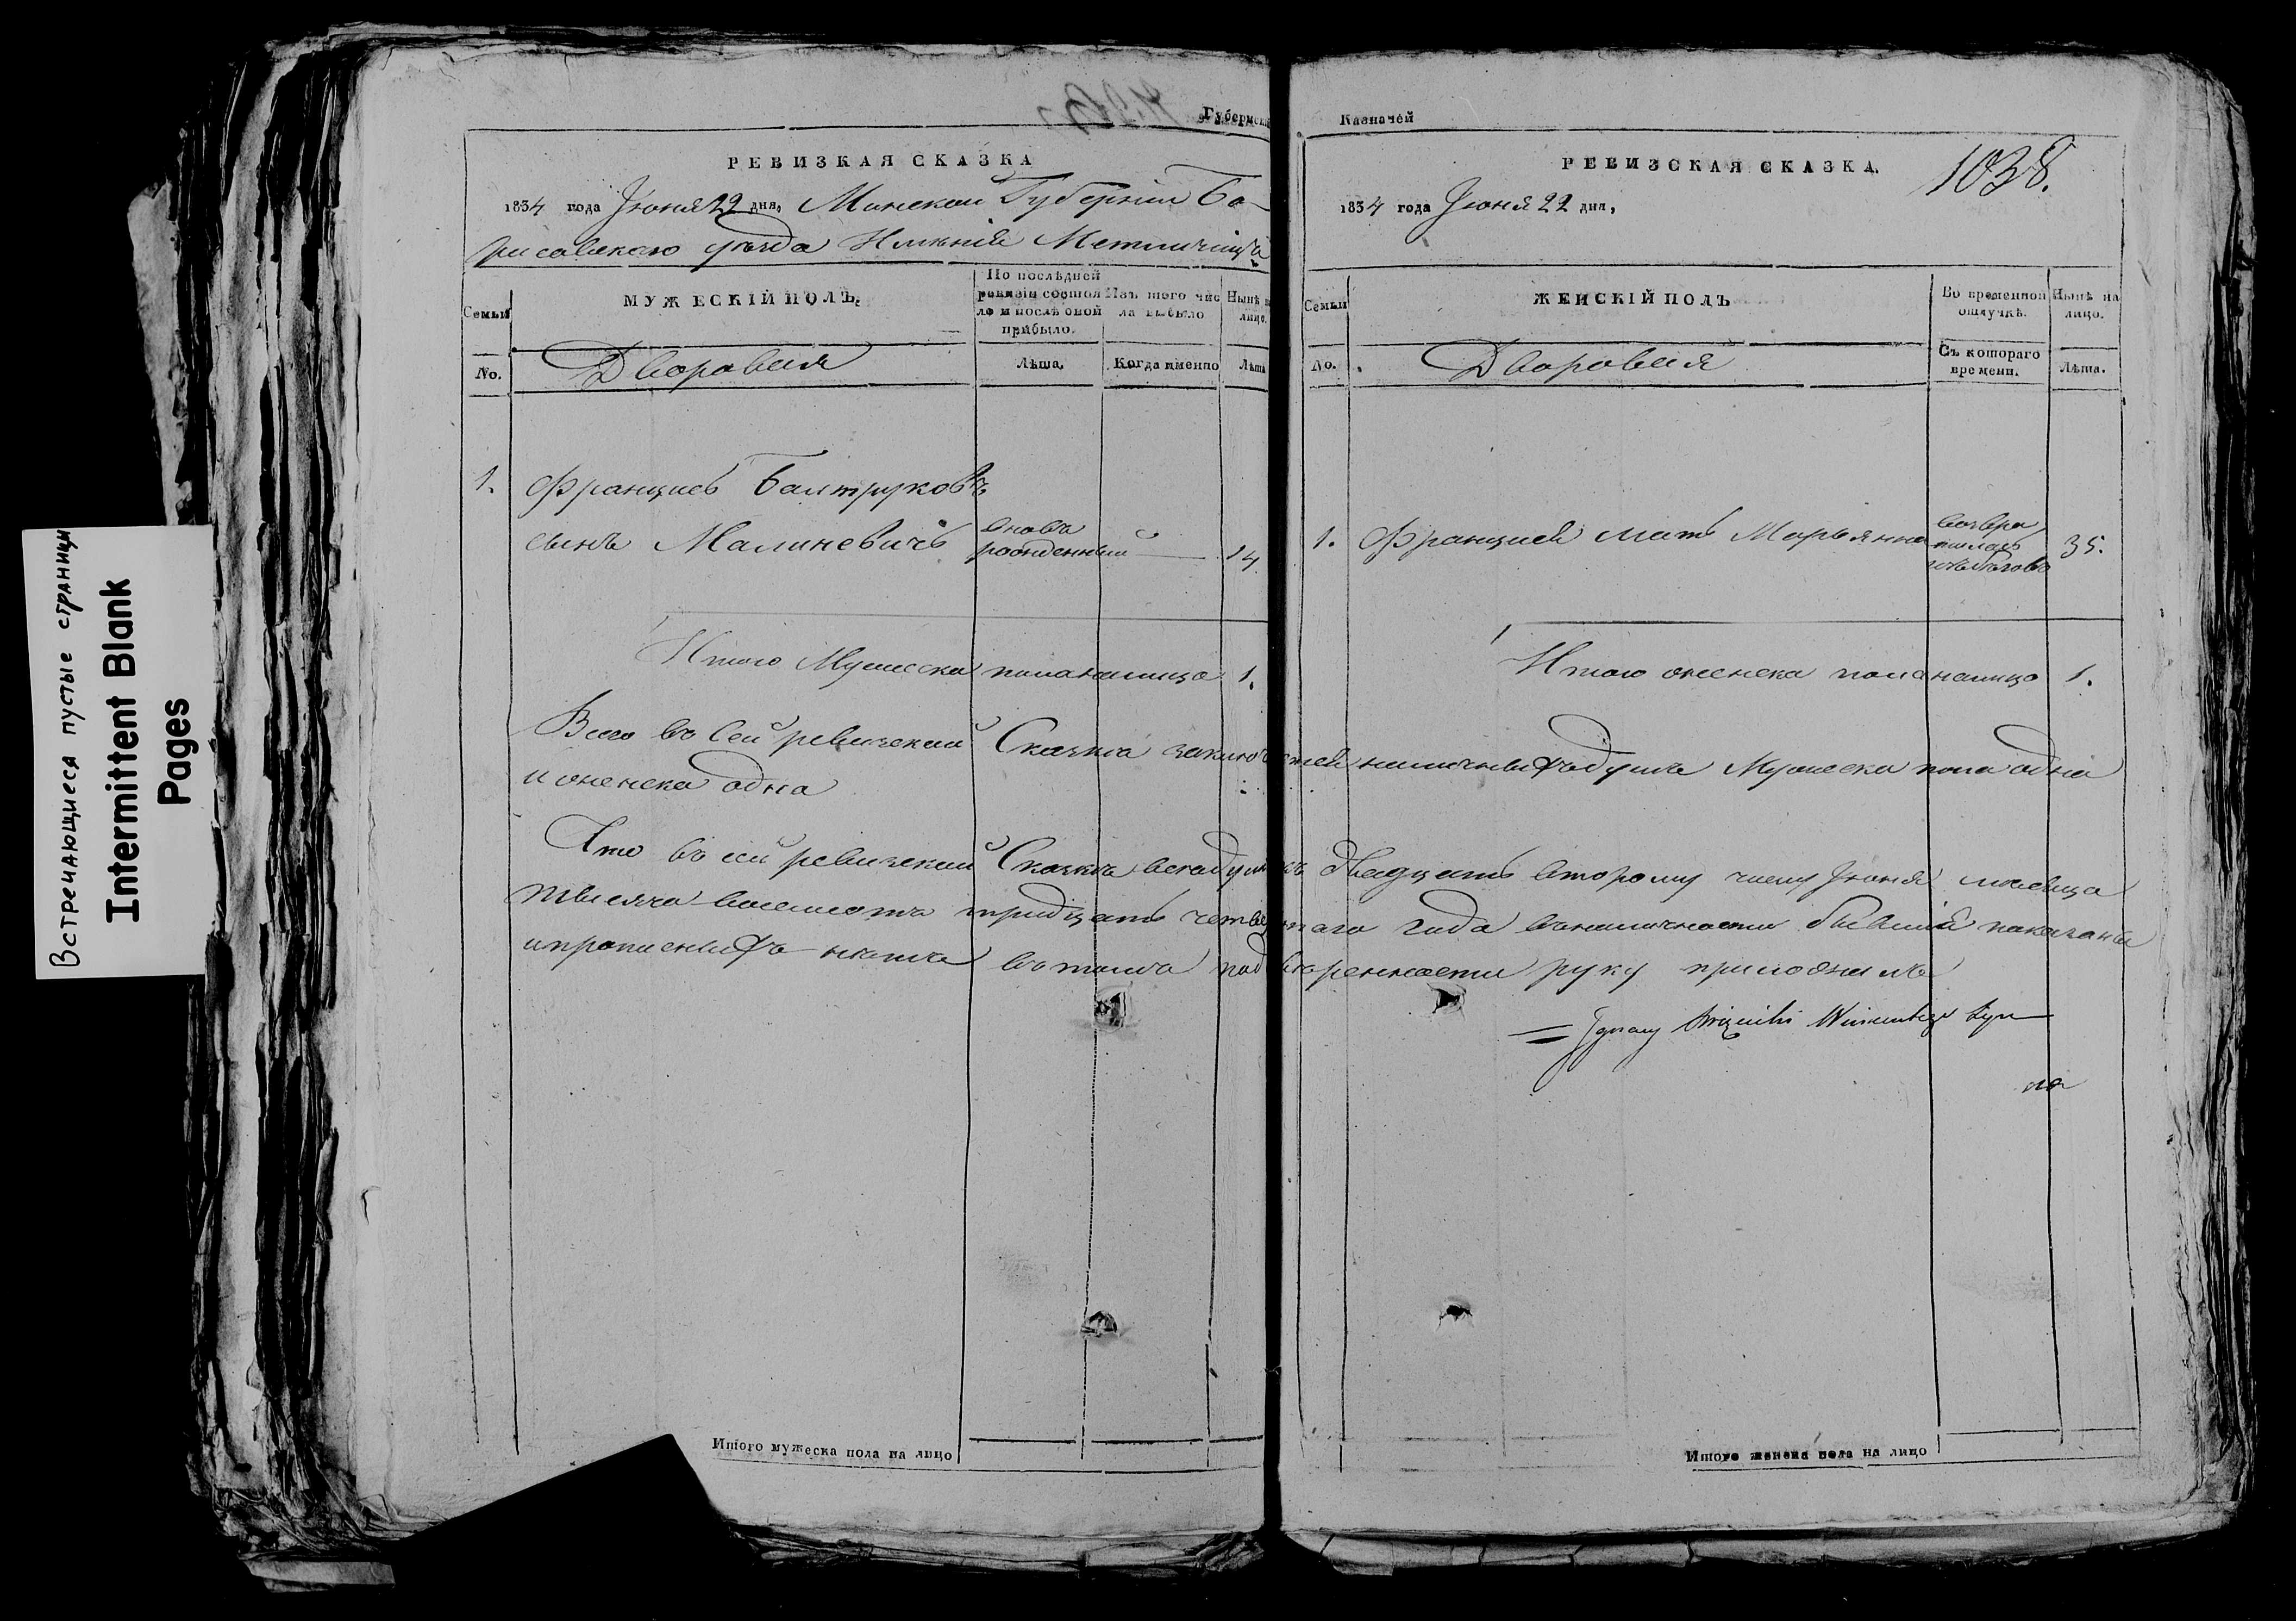 Встречающиеся пустые страницы
Intermittent Blank
Pages
Губернскій
РЕВИЗКАЯ СКАЗКА
1834 года Іюня 22 дня, Минской Губерніи Бо-
рисовского уѣзда Имѣнія
Семьи
МУЖЕСКІЙ ПОЛЪ.
По послѣдней
ревизіи состоя
ло и послѣ оной
прибыло.
Изъ того чис
ла выбыло
Нынѣ на
лицо.
No.
Дворовыя
Лѣта.
Когда именно
Лѣта
1. Францисъ Балтруковъ
сынъ Малиневичъ
вновь
рожденный
14
Итого Мужеска пола налицо 1.
Казначей
РЕВИЗСКАЯ СКАЗКА.
1038.
1834 года Іюня 22 дня,
Семьи
ЖЕНСКІЙ ПОЛЪ
Во временной
отлучкѣ.
Нынѣ на
лицо.
No.
Дворовыя
Съ котораго
времени.
Лѣта.
1. Францися мать Марьянна
возвра
тилась
изъ бѣговъ
35.
Итого женска пола налицо 1.
Всего въ сей ревизской Сказкѣ заключается наличныхъ душъ Мужеска пола одна
и женска одна
Что въ сей ревизской Сказкѣ всѣ души къ двадцать второму числу Іюня мѣсяца
тысяча восемьсотъ тридцать четвертаго года въ наличности бывшія показаны
и прописныхъ нѣтъ въ томъ руку приложилъ
Ignacy
на
Итого мужеска пола на лицо
Итого женска пола на лицо